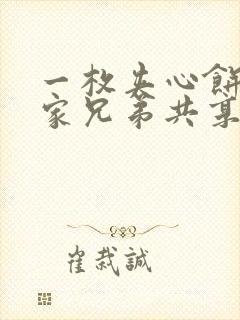 一枚夹心餅
家兄弟共享
崔哉誠